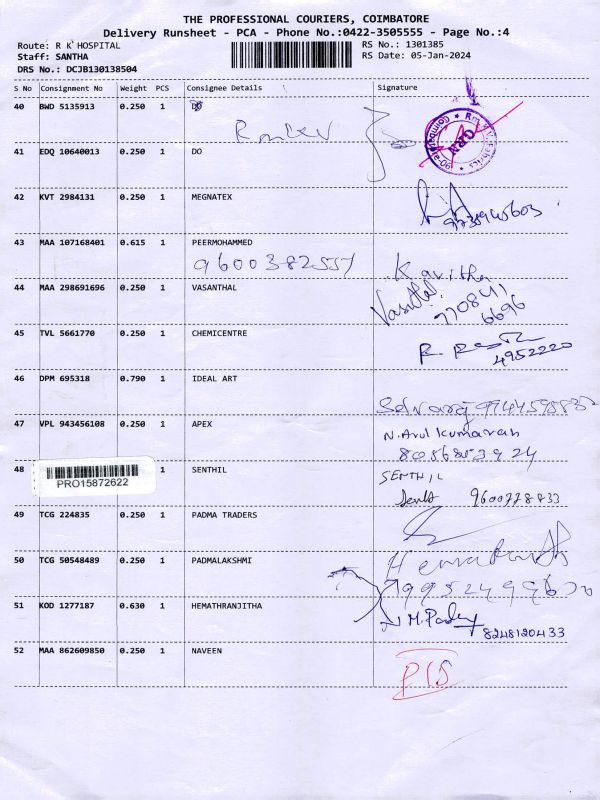 THE PROFESSIONAL COURIERS, COIMBATORE
Delivery Runsheet - PCA - Phone No.:0422-3505555 - Page No.:4
Route: R K HOSPITAL
RS No.: 1301385
Staff: SANTHA
RS Date: 05-Jan-2024
DRS No.: DCJB130138504
S No Consignment No Weight PCS Consignee Details Signature
40 BWD 5135913 0.250 1 DO
41 EDQ 10640013 0.250 1 DO
42 KVT 2984131 0.250 1 MEGNATEX
43 MAA 107168401 0.615 1 PEERMOHAMMED
9600382557 Kavitha
44 MAA 298691696 0.250 1 VASANTHAL
Vasantha
770841
6696
45 TVL 5661770 0.250 1 CHEMICENTRE
4952220
46 DPM 695318 0.790 1 IDEAL ART
Selvaraj
47 VPL 943456108 0.250 1 APEX
N. Arul Kumaran
48 PRO15872622 SENTHIL
SENTHIL
9600778833
49 TCG 224835 0.250 1 PADMA TRADERS
50 TCG 50548489 0.250 1 PADMALAKSHMI
51 KOD 1277187 0.630 1 HEMATHRANJITHA
8248120433
52 MAA 862609850 0.250 1 NAVEEN